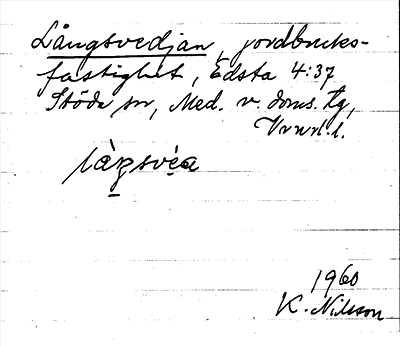 Långsvedjan, jordbruks-
fastighet, Edsta 4:37
Stöde sn, Med. v. doms. tg,
Vrnrl. l.
làŋsvèa
1960
K. Nilsson